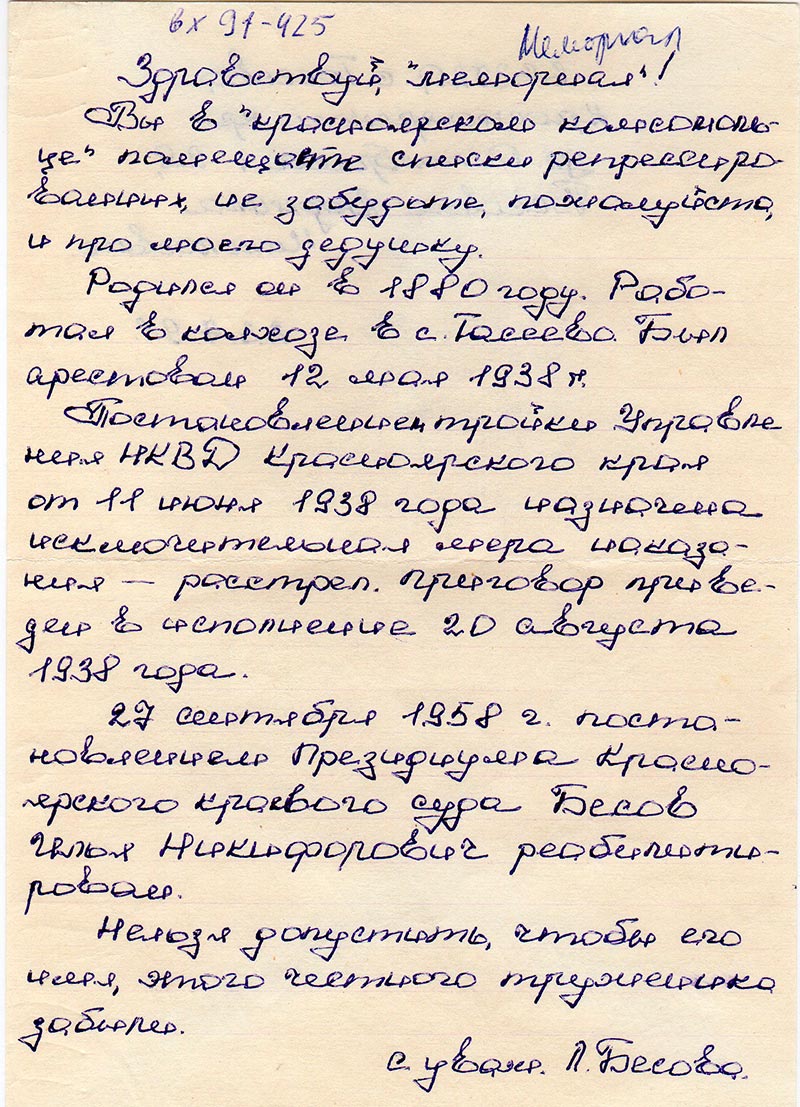 вх 91-425
Мемориал
Здравствуй, "мемориал"!
Вы в "красноярском комсомоль-
це" помещаете списки репрессиро-
ванных, не забудьте, пожалуйста,
и про моего дедушку.
Родился он в 1880 году. Рабо-
тал в колхозе в с. Тасеево. Был
арестован 12 мая 1938 г.
Постановлением тройки Управле
ния НКВД Красноярского края
от 11 июня 1938 года назначена
исключительная мера наказа-
ния — расстрел. Приговор приве-
ден в исполнение 20 августа
1938 года.
27 сентября 1958 г. поста-
новлением Президиума Красно-
ярского краевого суда Бесов
Илья Никифорович реабилити-
рован.
Нельзя допустить, чтобы его
имя, этого честного труженика
забыли.
с уваж. Л. Бесова.